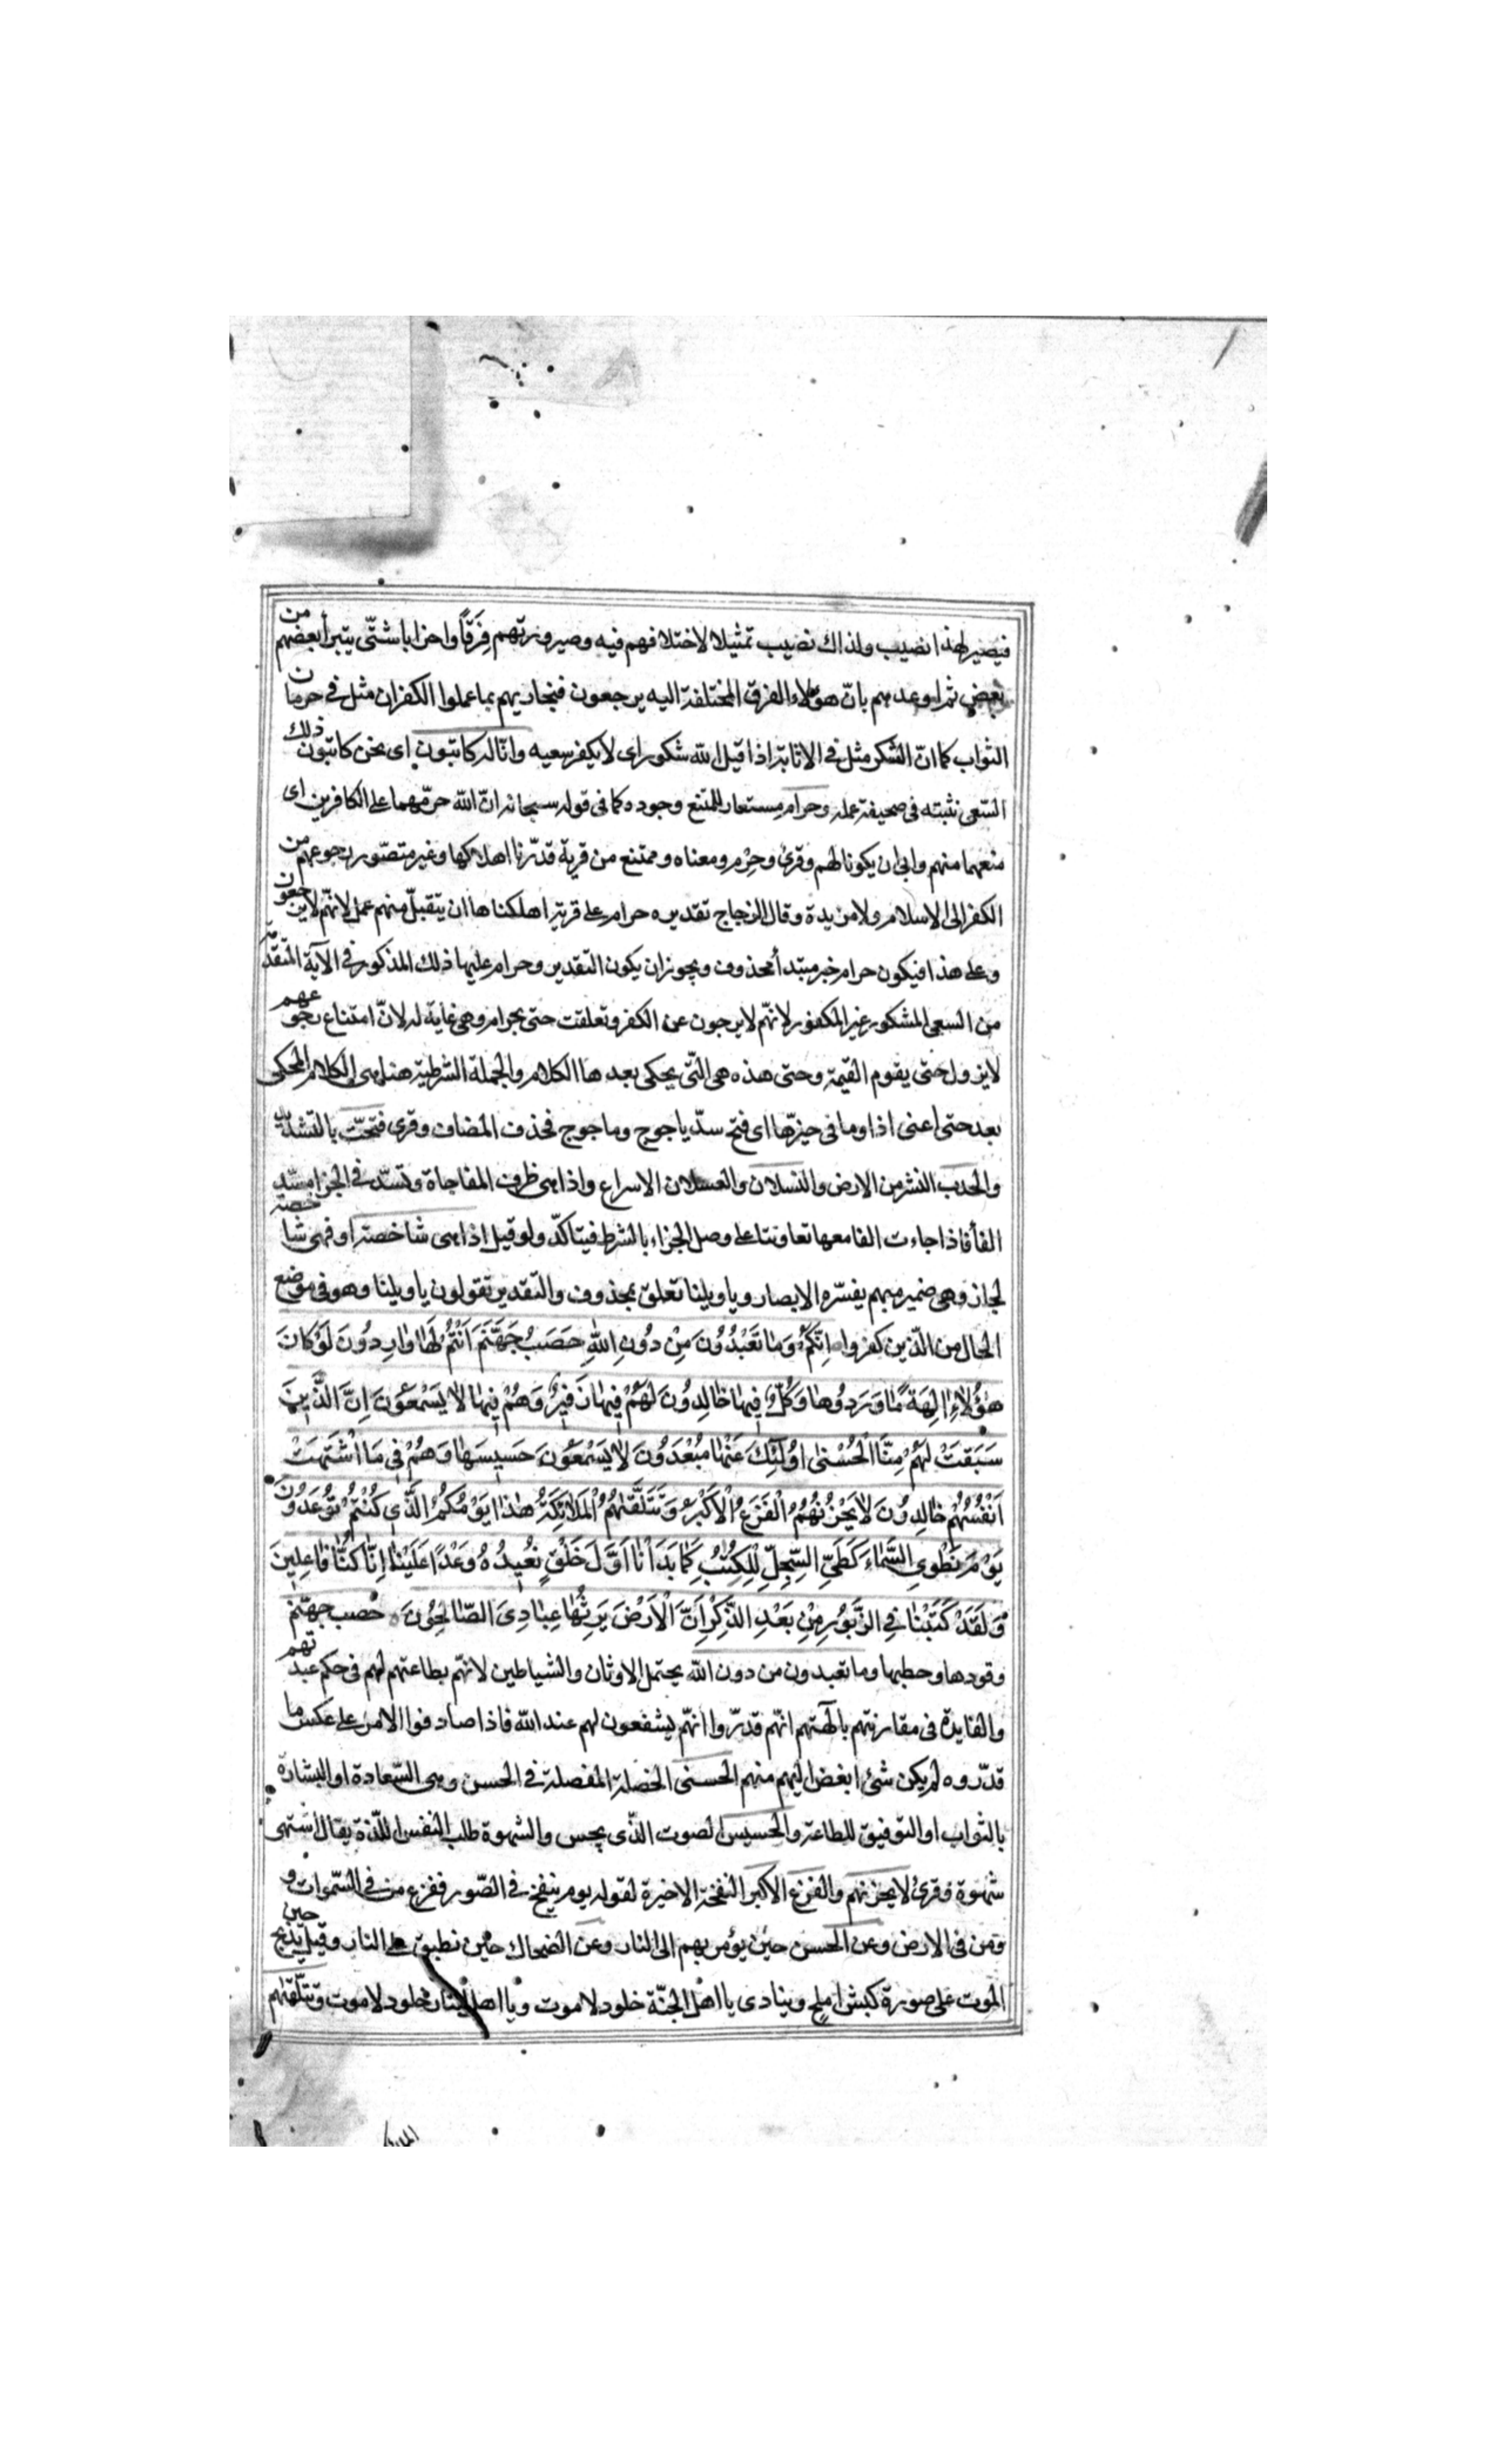 فيصير لهذا نصيب ولذاك نصيب تمثيلا لاختلافهم فيه وصيرورتهم فِرَقًا واحزابا شتّى يتبرأ بعضهم من
بعض ثم اوعدهم بانّ هؤلاء الفرق المختلفة اليه يرجعون فنجازيهم بما عملوا الكفران مثل في حرمان
الثواب كما انّ الشكر مثل في الاثابة اذا قيل الله شكور اى لا يكفر سعيه وانّا له كاتبون اى نحن كاتبون ذلك
السّعى نثبته فى صحيفة عمله وحرام مستعار للمتنع وجوده كما فى قوله سبحانه انّ الله حرّمهما على الكافرين اى
منعهما منهم وابى ان يكونا لهم وقرئ وحِرْم ومعناه وممتنع من قرية قدّرنا اهلاكها وغير متصّور رجوعهم من
الكفر الى الاسلام ولا مزيدة وقال الزجاج تقديره حرام على قرية اهلكناها ان يتقبلّ منهم عمل لانهّم لا يرجعون
وعلى هذا فيكون حرام خبر مبتدأ محذوف ويجوز ان يكون التقدير وحرام عليها ذلك المذكور فى الآية المتقدّمة
من السعى المشكور غير المكفور لانهّم لا يرجون عن الكفر وتعلقت حتى بحرام وهى غاية له لانّ امتناع رجوعهم
لا يزول حتى يقوم القيمة وحتى هذه هى التّى يحكى بعدها الكلام والجملة الشرطية هنا هى الكلام المحكى
بعد حتى اعنى اذا وما فى حيزّها اى فتح سدّ ياجوج وماجوج فحذف المضاف وقرى فتحّت بالتشديد
والحدب النشز من الارض والنسلان والعسلان الاسراع واذا هى ظرف المفاجاة وتسدّ فى الجزا مسّد
الفأ فاذا جاءت الفا معها تعاونتا على وصل الجزاء بالشرط فيتاكّد ولو قيل اذا هى شاخصة او فهى شاخصة
لجاز وهى ضمير مبهم يفسّره الابصار ويا ويلنا تعلق بمحذوف والتقدير تقولون يا ويلنا وهو فى موضع
الحال من الّذين كفروا اِنَّكُمْ وَمَا تَعْبُدُونَ مِنْ دُونِ اللهِ حَصَبُ جَهَنَّمَ اَنْتُمْ لَهَا وَارِدُونَ لَوْ كَانَ
هٰؤُلَاءِ اٰلِهَةً مَّا وَرَدُوهَا وَكُلٌّ فِيهَا خَالِدُونَ لَهُمْ فِيهَا زَفِيرٌ وَهُمْ فِيهَا لَا يَسْمَعُونَ اِنَّ الَّذِينَ
سَبَقَتْ لَهُمْ مِنَّا الْحُسْنٰى اُولٰئِكَ عَنْهَا مُبْعَدُونَ لَا يَسْمَعُونَ حَسِيسَهَا وَهُمْ فِى مَا اشْتَهَتْ
اَنْفُسُهُمْ خَالِدُونَ لَا يَحْزُنُهُمُ الْفَزَعُ الْاَكْبَرُ وَتَتَلَقّٰيهُمُ الْمَلَائِكَةُ هٰذَا يَوْمُكُمُ الَّذِى كُنْتُمْ تُوعَدُونَ
يَوْمَ نَطْوِى السَّمَاءَ كَطَىِّ السِّجِلِّ لِلْكُتُبِ كَمَا بَدَأْنَا اَوَّلَ خَلْقٍ نُعِيدُهُ وَعْدًا عَلَيْنَا اِنَّا كُنَّا فَاعِلِينَ
وَلَقَدْ كَتَبْنَا فِى الزَّبُورِ مِنْ بَعْدِ الذِّكْرِ اَنَّ الْاَرْضَ يَرِثُهَا عِبَادِىَ الصَّالِحُونَ حصب جهنّم
وقودها وحطبها وما تعبدون من دون الله يحتمل الاوثان والشياطين لانهّم بطاعتهم لهم فى حكم عبدتهم
والفايدة فى مقارنتهم بآلهتهم انهّم قدرّوا انهّم يشفعون لهم عند الله فاذا صادفوا الامر على عكس ما
قدّروه لم يكن شئ ابغض اليهم منهم الحسنى الخصلة المفضلة فى الحسن وهى السّعادة او البشارة
بالثواب او التوفيق للطاعة والحسيس الصوت الّذى يحس والشهوة طلب النفس اللّذة يقال اشتهى
شهوة وقرئ لا يحزنهم والفزع الاكبر النفخة الاخيرة لقوله يوم ينفخ فى الصّور ففزع من فى السّموات و
ومن فى الارض وعن الحسن حين يؤمر بهم الى النار وعن الضحاك حين تطبق على النار وقيل حين يذبح
الموت على صورة كبش املح وينادى يا اهل الجنّة خلود لا موت ويا اهل النار خلود لا موت وتتلّقيهم